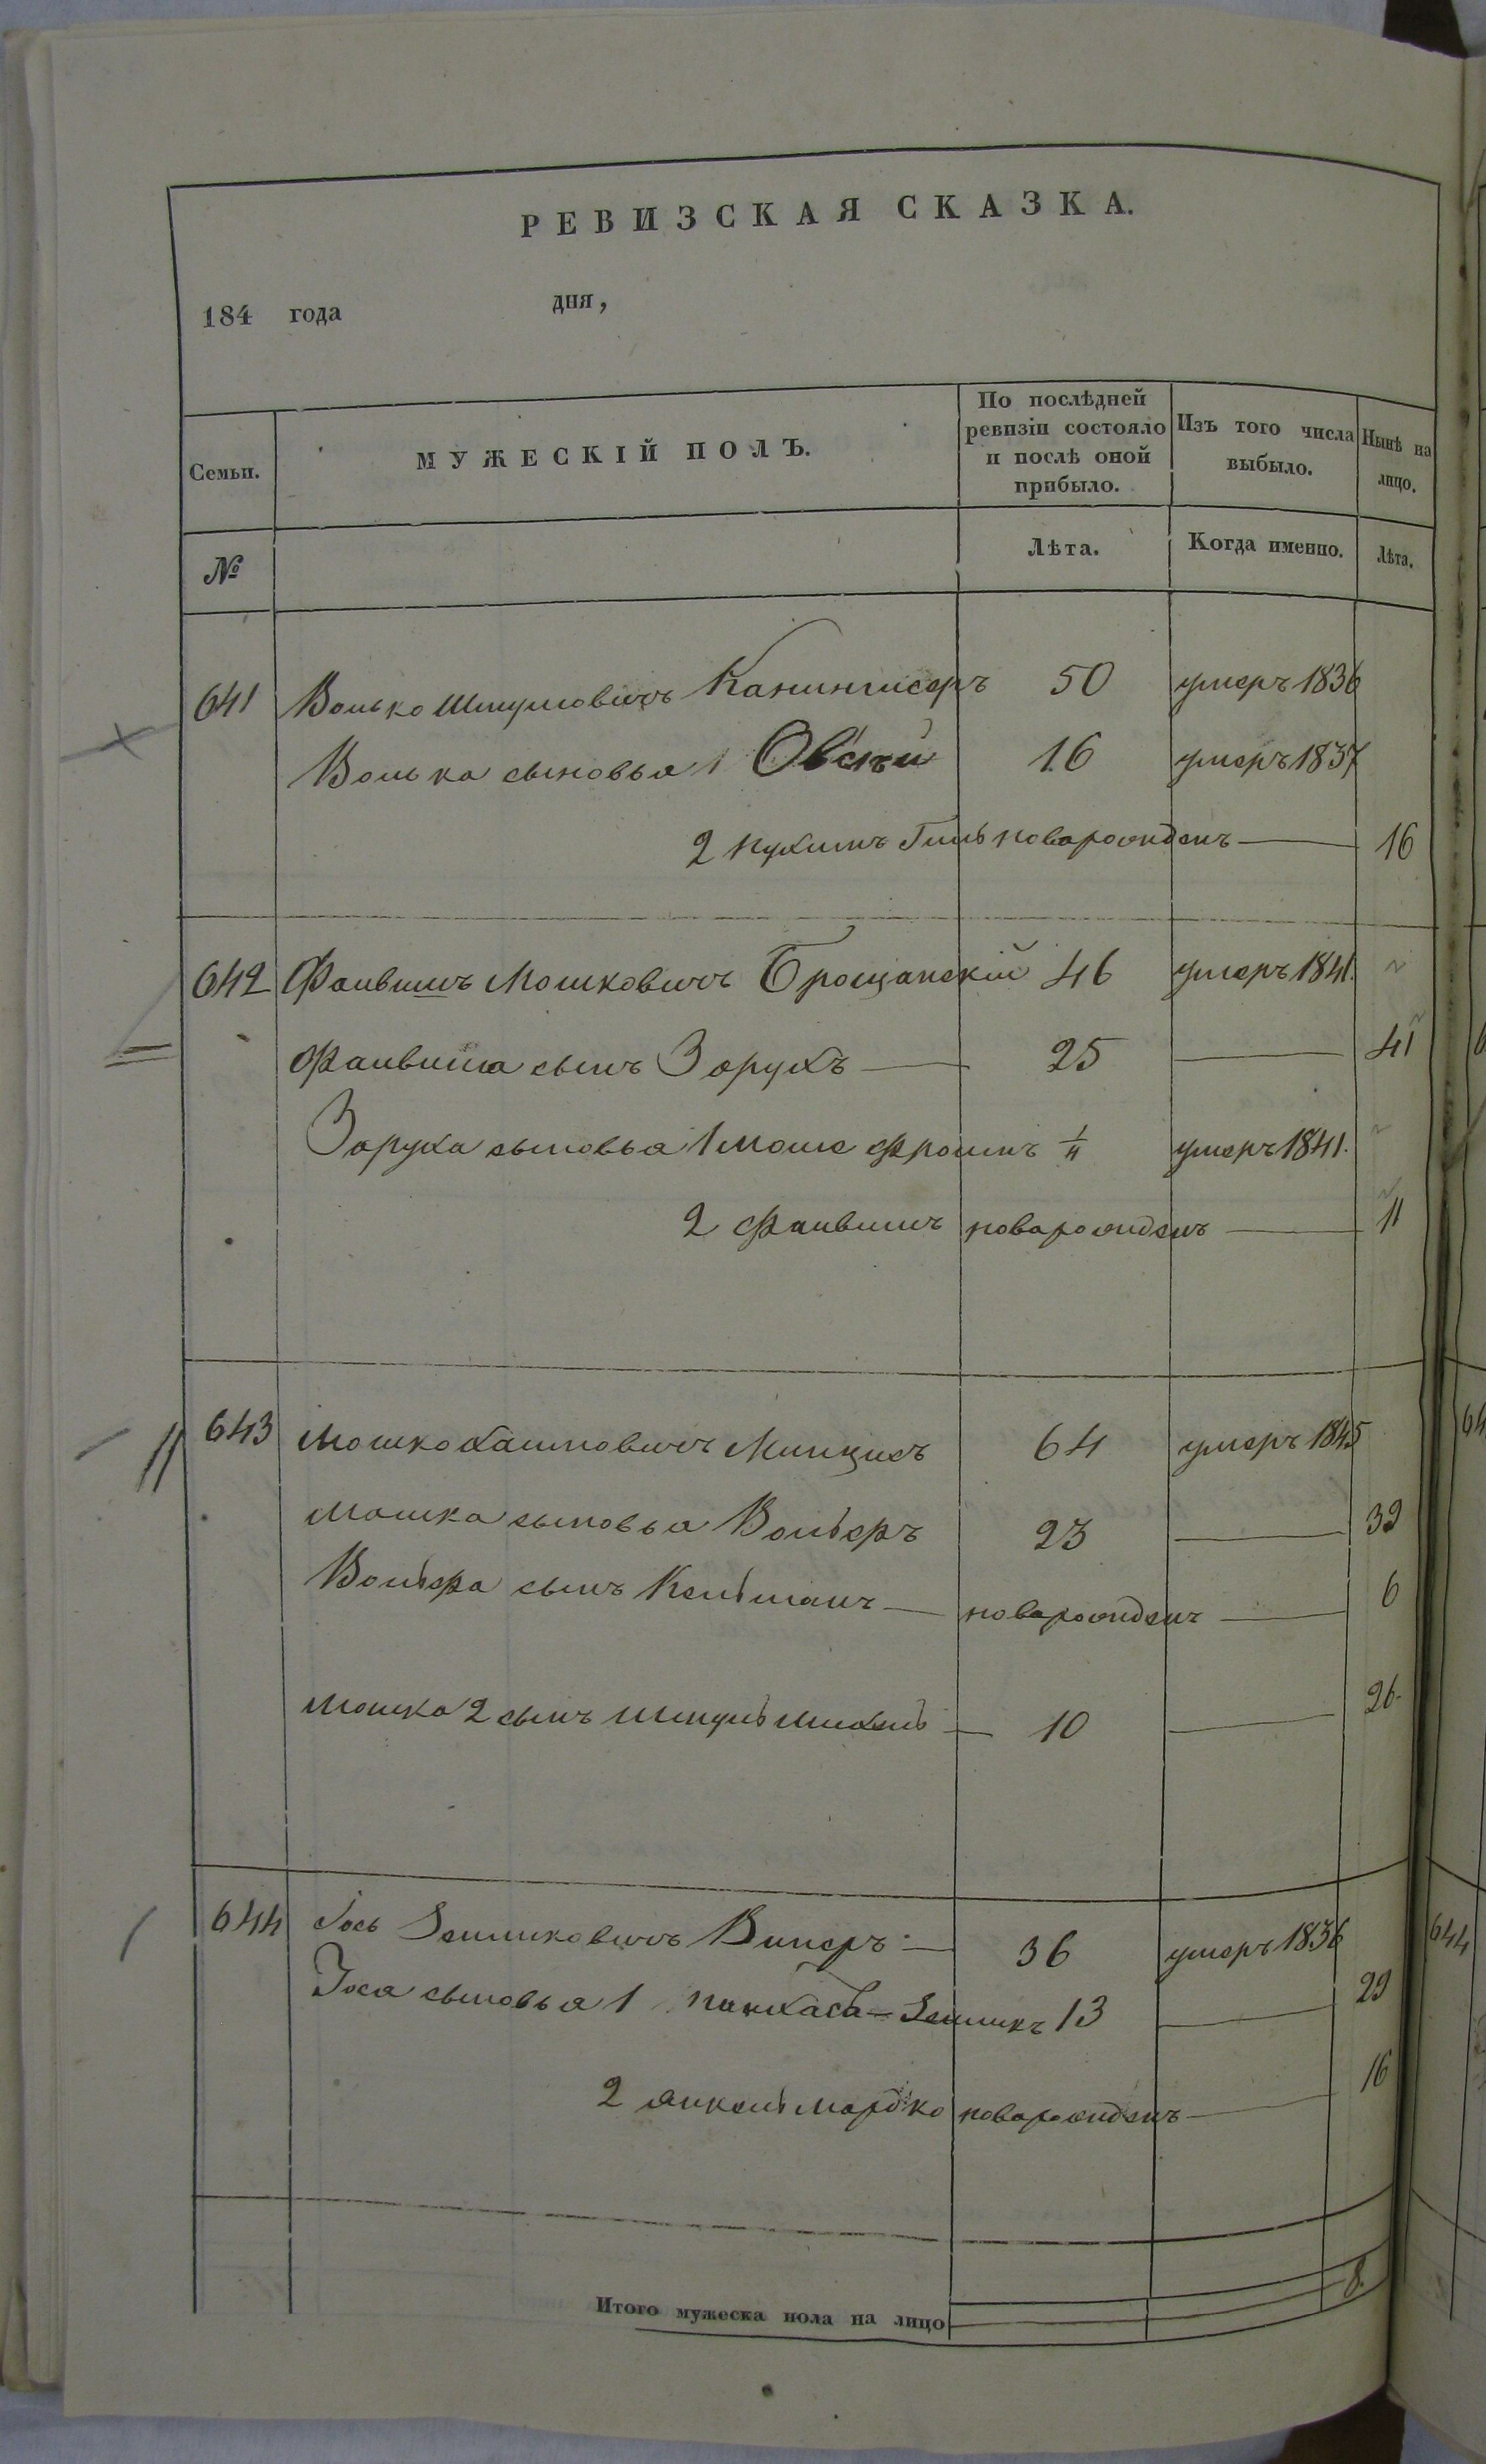 РЕВИЗСКАЯ СКАЗКА.
184 года дня,
Семьи. МУЖЕСКІЙ ПОЛЪ. По послѣдней ревизіи состояло и послѣ оной прибыло. Изъ того числа выбыло. Нынѣ на лицо.
№ Лѣта. Когда именно. Лѣта.
641 Волько Шмуловичъ 50 умеръ 1836
Волька сыновья 1 Овсѣй 16 умеръ 1837
2 Нухимъ Гиль новорожденъ 16
642 Файвишъ Мошковичъ Брощанскій 46 умеръ 1841.
Файвиша сынъ Зорухъ 25 41
Зоруха сыновья 1 Моше Фроимъ умеръ 1841.
2 Файвишъ новорожденъ 11
643 Мошко Хаимовичъ Минцисъ 64 умеръ 1845
Мошка сыновья Вольфъ 23 39
Вольфа сынъ Кельманъ новорожденъ 6
Мошка 2 сынъ Шмуль Михель 10 26
644 Іось Зеликовичъ Винеръ 36 умеръ 1836
Іося сыновья 1 Пинхасъ-Зелликъ 13 29
2 Янкель Мордко новорожденъ 16
Итого мужеска пола на лицо 8.
644